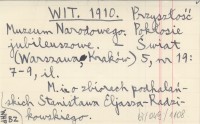 WIT. 1910. Przyszłość
Muzeum Narodowego. Pokłosie
jubileuszowe. – Świat
(Warszawa, Kraków) 5, nr 19:
7-9, il.
M.i. o zbiorach podhalań-
skich Stanisława Eljasza-Radzi-
kowskiego.
BZ